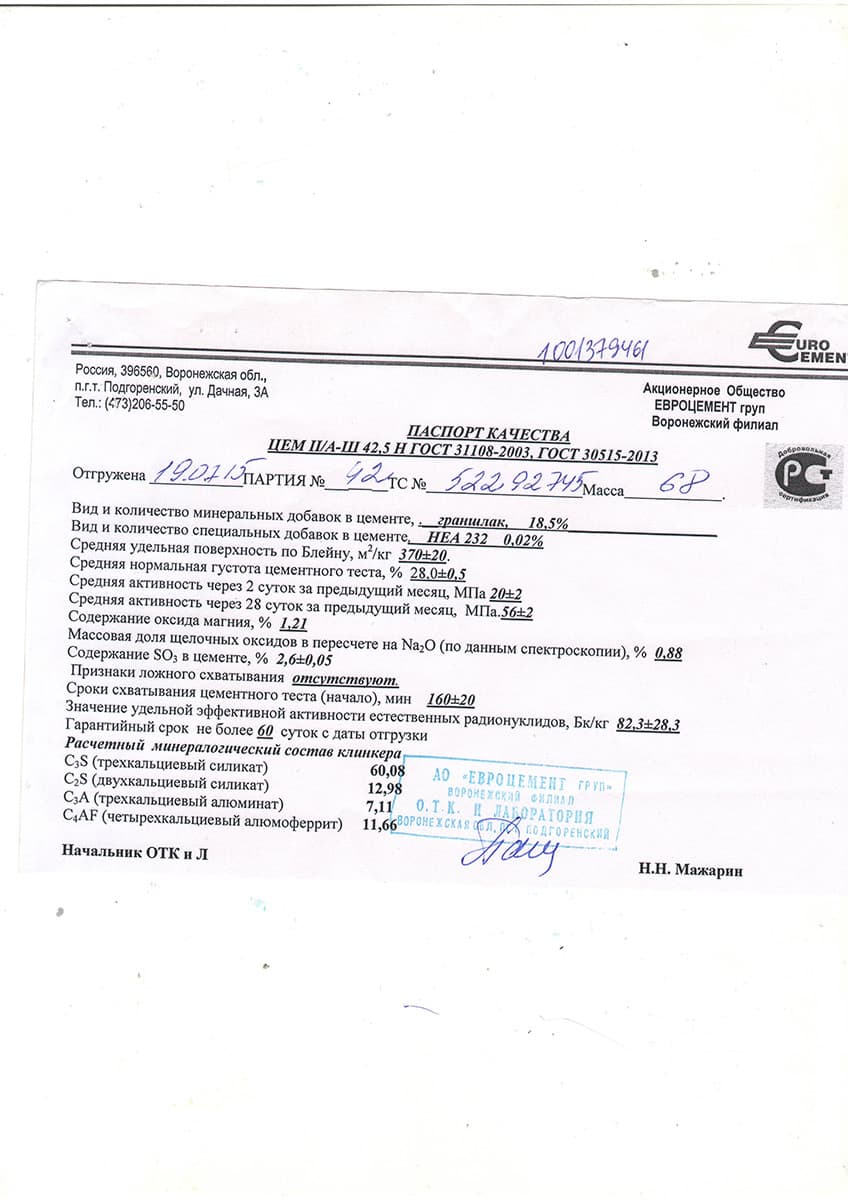 1001379461
EURO
CEMENT
Россия, 396560, Воронежская обл.,
п.г.т. Подгоренский, ул. Дачная, 3А
Тел.: (473)206-55-50
Акционерное Общество
ЕВРОЦЕМЕНТ груп
Воронежский филиал
ПАСПОРТ КАЧЕСТВА
ЦЕМ II/А-Ш 42,5 Н ГОСТ 31108-2003, ГОСТ 30515-2013
Добровольная
РСТ
сертификация
Отгружена 19.07.15 ПАРТИЯ № 42 ТС № 52292745 Масса 68.
Вид и количество минеральных добавок в цементе, . граншлак, 18,5%
Вид и количество специальных добавок в цементе, НЕА 232 0,02%
Средняя удельная поверхность по Блейну, м²/кг 370±20.
Средняя нормальная густота цементного теста, % 28,0±0,5
Средняя активность через 2 суток за предыдущий месяц, МПа 20±2
Средняя активность через 28 суток за предыдущий месяц, МПа.56±2
Содержание оксида магния, % 1,21
Массовая доля щелочных оксидов в пересчете на Na₂O (по данным спектроскопии), % 0,88
Содержание SO₃ в цементе, % 2,6±0,05
Признаки ложного схватывания отсутствуют.
Сроки схватывания цементного теста (начало), мин 160±20
Значение удельной эффективной активности естественных радионуклидов, Бк/кг 82,3±28,3
Гарантийный срок не более 60 суток с даты отгрузки
Расчетный минералогический состав клинкера
C₃S (трехкальциевый силикат) 60,08
C₂S (двухкальциевый силикат) 12,98
C₃A (трехкальциевый алюминат) 7,11
C₄AF (четырехкальциевый алюмоферрит) 11,66
АО «ЕВРОЦЕМЕНТ ГРУП»
ВОРОНЕЖСКИЙ ФИЛИАЛ
О.Т.К. И ЛАБОРАТОРИЯ
ВОРОНЕЖСКАЯ ОБЛ. ПОДГОРЕНСКИЙ
Начальник ОТК и Л
Н.Н. Мажарин